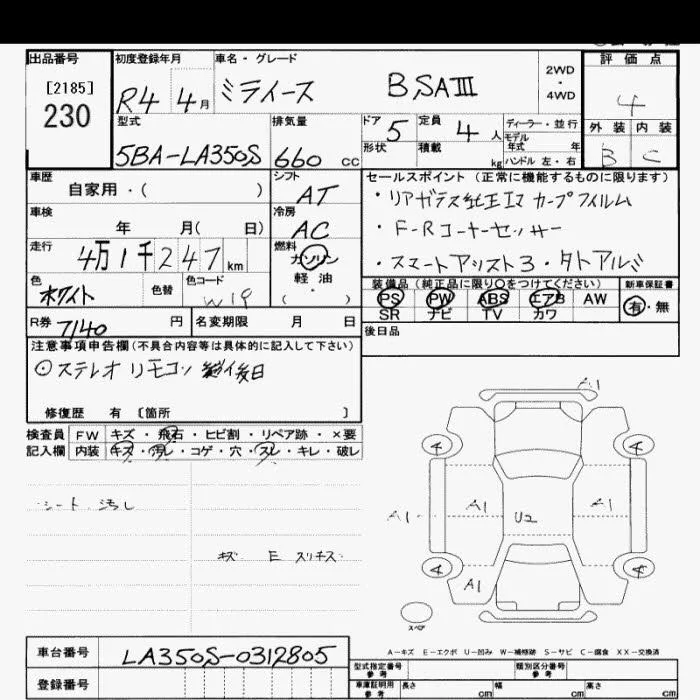 出品番号
[2185]
230
初度登録年月
R4 4月
車名・グレード
ミライース B,SAⅢ
2WD
・
4WD
評価点
4
外装 内装
B C
型式
5BA-LA350S
排気量
660 cc
ドア 5
形状
定員 4 人
積載 kg
ディーラー・並行
モデル
年式 年
ハンドル 左・右
車歴
自家用・( )
シフト
AT
車検
年 月( 日)
冷房
AC
走行
4万1千247km
燃料
ガソリン
軽油
( ・ )
色
ホワイト
色替
色コード
W19
R券 7140 円
名変期限 月 日
セールスポイント(正常に機能するものに限ります)
・リアガラス純正 カープフィルム
・F-Rコーナーセッサー
・スマートアシスト3・
装備品(純正品に限り○をつけてください)
PS PW ABS エアB AW
SR ナビ TV カワ
新車保証書
有・無
後日品
注意事項申告欄(不具合内容等は具体的に記入して下さい)
⊙ステレオ リモコン 後日
修復歴 有 〔箇所 〕
検査員
記入欄
FW キズ・飛石・ヒビ割・リペア跡・×要
内装 キズ・汚レ・コゲ・穴・スレ・キレ・破レ
シート 汚レ
キズ E スリキズ
A1
4 4
A1 A1 U2 A1
4 4
A1
スペア
A-キズ E-エクボ U-凹み W-補修跡 S-サビ C-腐食 XX-交換済
車台番号
LA350S-0312805
登録番号
型式指定番号
参考
類別区分番号
参考
車庫証明用
参考
長さ cm 幅 cm 高さ cm